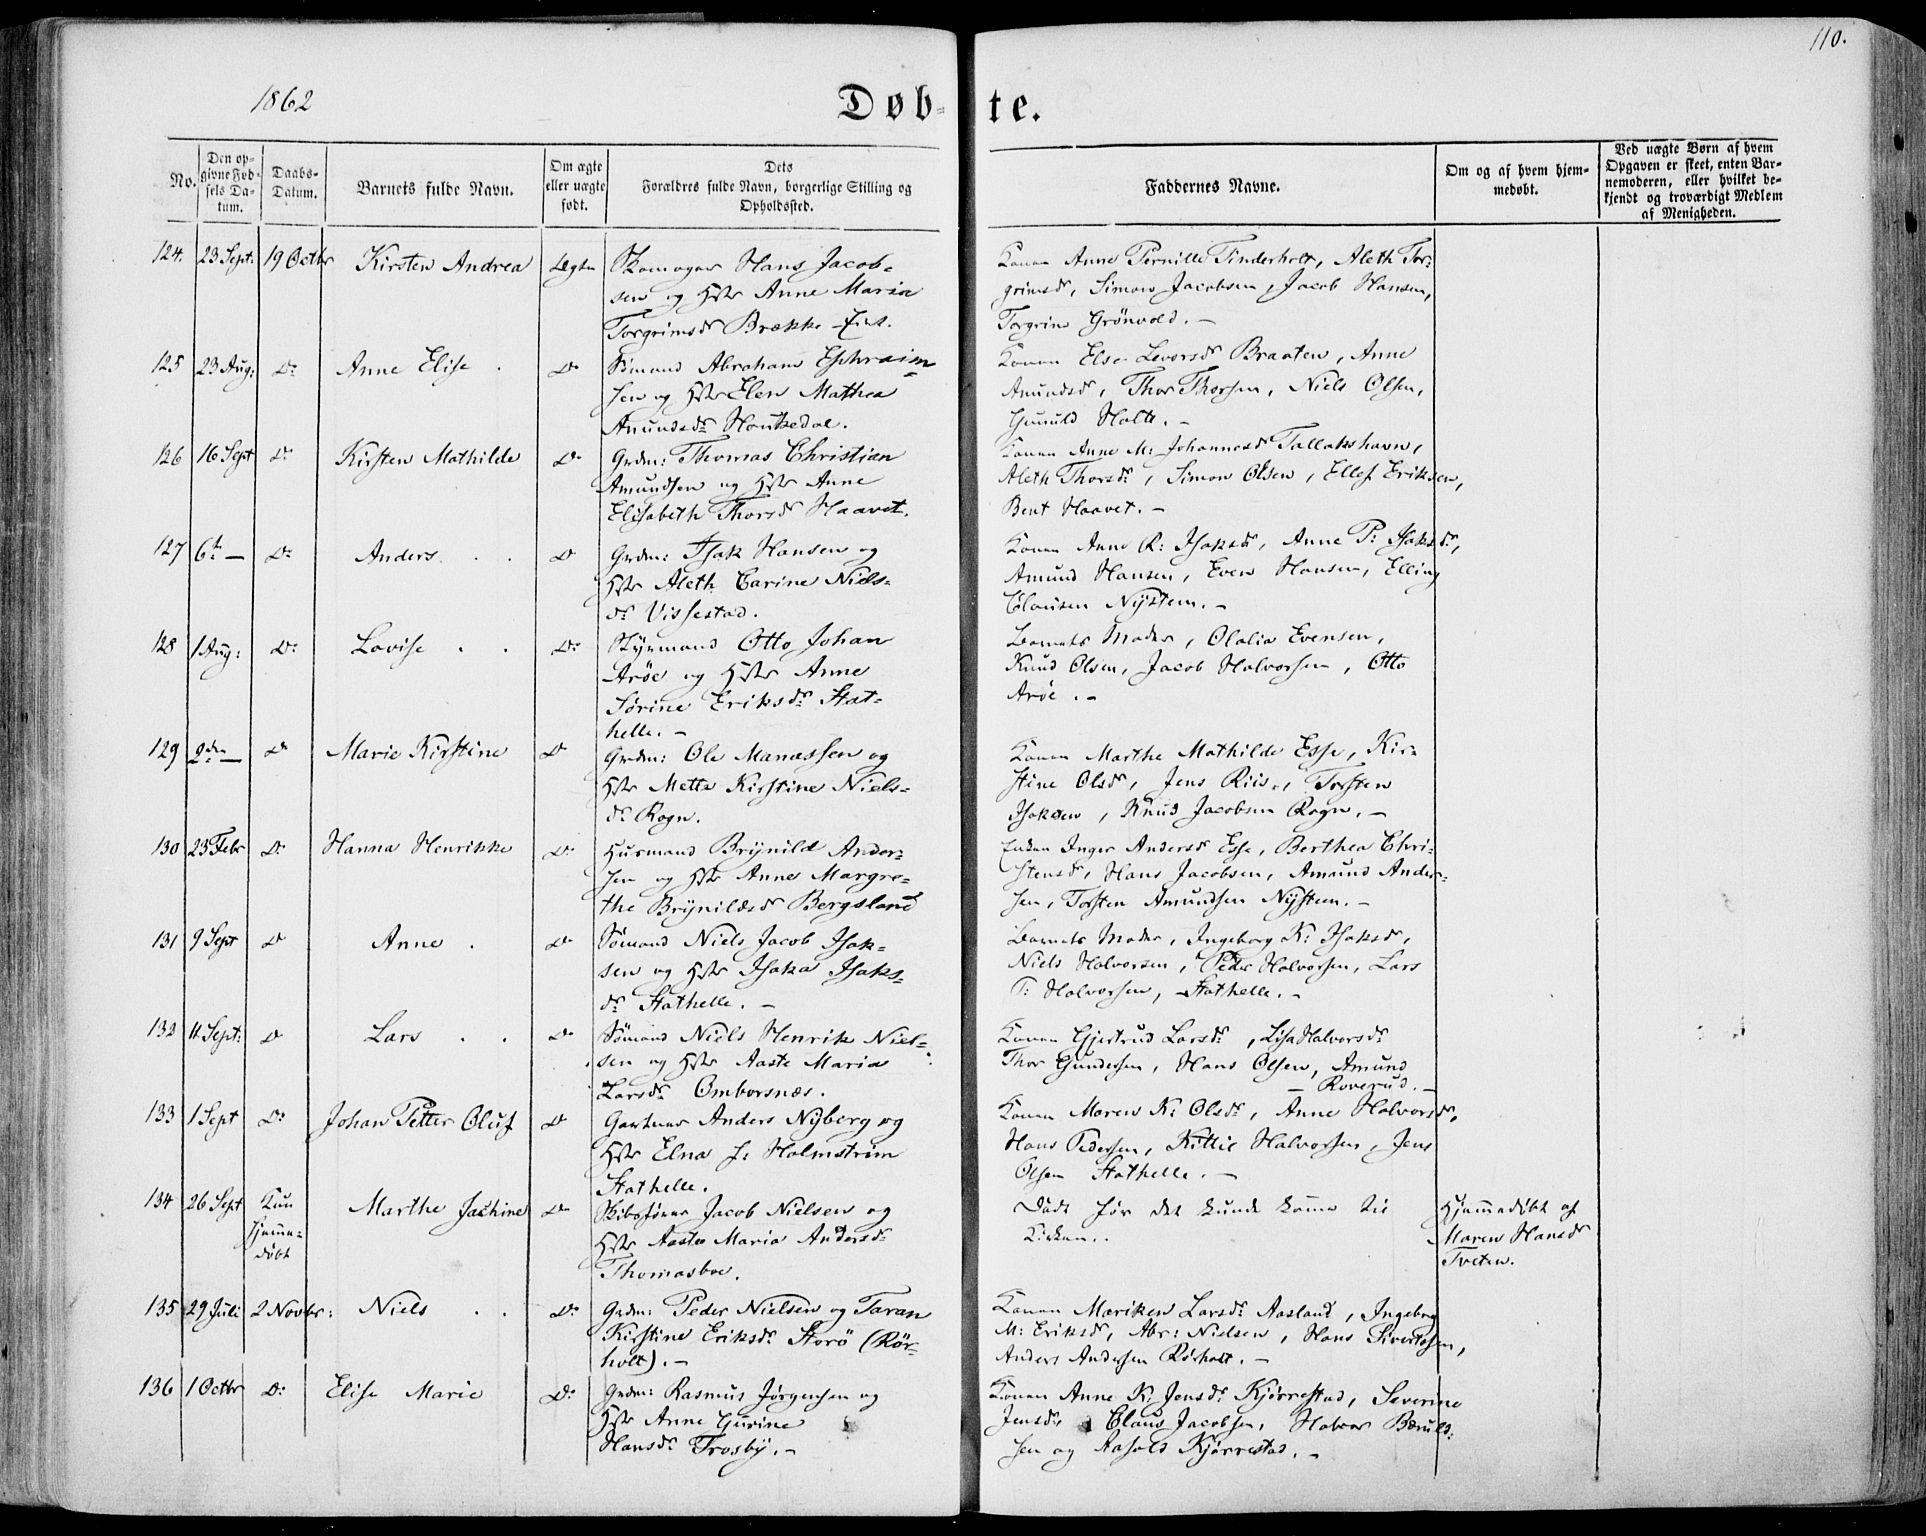 110.
1862
Døb-te.
No.
Den opgivne Fødsels Datum.
Daabs-Datum.
Barnets fulde Navn.
Om ægte eller uægte født.
Dets Forældres fulde Navn, borgerlige Stilling og Opholdssted.
Faddernes Navne.
Om og af hvem hjemmedøbt.
Ved uægte Børn af hvem Opgaven er skeet, enten Barnemoderen, eller hvilket bekjendt og troværdigt Medlem af Menigheden.
124. 23 Sept: 19 Octbr Kirsten Andrea Ægte
Skomager Hans Jacob-
sen og Hstr Anne Maria
Torgrimsdr Brække
Konen Anne Pernille Tinderholt, Aleth Tor-
grimsdr, Simon Jacobsen, Jacob Hansen,
Torgrim Grönvold. -
125 23 Aug: Do Anne Elise Do
Sömand Abraham Ephraim-
sen og Hstr Elen Mathea
Amundsdr Houkedal.
Konen Else Levorsdr Braaten, Anne
Amundsdr, Thor Thorsen, Niels Olsen,
Gunuld Holte. -
126 16 Sept Do Kirsten Mathilde Do
Grdm: Thomas Christian
Amundsen og Hstr Anne
Elisabeth Thorsdr Haavet.
Konen Anne M: Johannesdr Tallakshavn,
Aleth Thorsdr, Simon Olsen, Ellef Eriksen,
Bent Haavet. -
127 6te - Do Anders Do
Grdm: Isak Hansen og
Hstr Aleth Carine Niels-
dr Vissestad.
Konen Anne R: Isaksdr, Anne P: Isaksdr,
Amund Hansen, Even Hansen, Elling
Clausen Nystem. -
128 1 Aug: Do Lovise Do
Styrmand Otto Johan
Aröe og Hstr Anne
Sörine Eriksdr Stat-
helle. -
Barnets Moder, Olalia Evensen,
Knud Olsen, Jacob Halvorsen, Otto
Aröe. -
129 2den - Do Marie Kirstine Do
Grdm: Ole Manassen og
Hstr Mette Kirstine Niels-
dr Rogn.
Konen Marthe Mathilde Esse, Kir-
stine Olsdr, Jens Riis, Torsten
Isaksen, Knud Jacobsen Rogn. -
130 23 Febr Do Hanna Henrikke Do
Husmand Brynild Ander-
sen og Hstr Anne Margre-
the Brynildsdr Bergsland
Enken Inger Andersdr Esse, Berthea Chri-
stensdr, Hans Jacobsen, Amund Ander-
sen, Torsten Amundsen Nystem. -
131 9 Sept Do Anne Do
Sömand Niels Jacob Isak-
sen og Hstr Isaka Isaks-
dr Stathelle. -
Barnets Moder, Ingeborg K: Isaksdr,
Niels Halvorsen, Peder Halvorsen, Lars
T: Halvorsen, Stathelle. -
132 11 Sept: Do Lars Do
Sömand Niels Henrik Niel-
sen og Hstr Aaste Maria
Larsdr Omborsnæs.
Konen Gjertrud Larsdr, Lisa Halvorsdr
Thor Gundersen, Hans Olsen, Amund
- Roverud. -
133 1 Sept Do Johan Petter Oluf Do
Gartner Anders Nyberg og
Hstr Elna J: Holmström
Stathelle.
Konen Maren K: Olsdr, Anne Halvorsdr,
Hans Pedersen, Kittil Halvorsen, Jens
Olsen Stathelle. -
134 26 Sept Kun
hjemme-
döbt
Marthe Jachine Do
Skibsförer Jacob Nielsen og
Hstr Aaste Maria Andersdr
Thomasboe.
Döde för det kunde komme til
Kirken..
Hjemmedöbt af
Maren Hansdr
Tveten.
135 29 Juli 2 Novbr: Niels Do
Grdm: Peder Nielsen og Taran
Kirstine Eriksdr Storö (Rör-
holt). -
Konen Mariken Larsdr Aasland, Ingeborg
M: Eriksdr, Abr: Nielsen, Hans Sivertsen,
Anders Andersen Rörholt. -
136 1 Octbr Do Elise Marie Do
Grdm: Rasmus Jörgensen og
Hstr Anne Gurine
Hansdr Trosby. -
Konen Anne K: Jensdr Kjörrestad, Severine
Jensdr, Claus Jacobsen, Halvor
sen og Kjörrestad. -